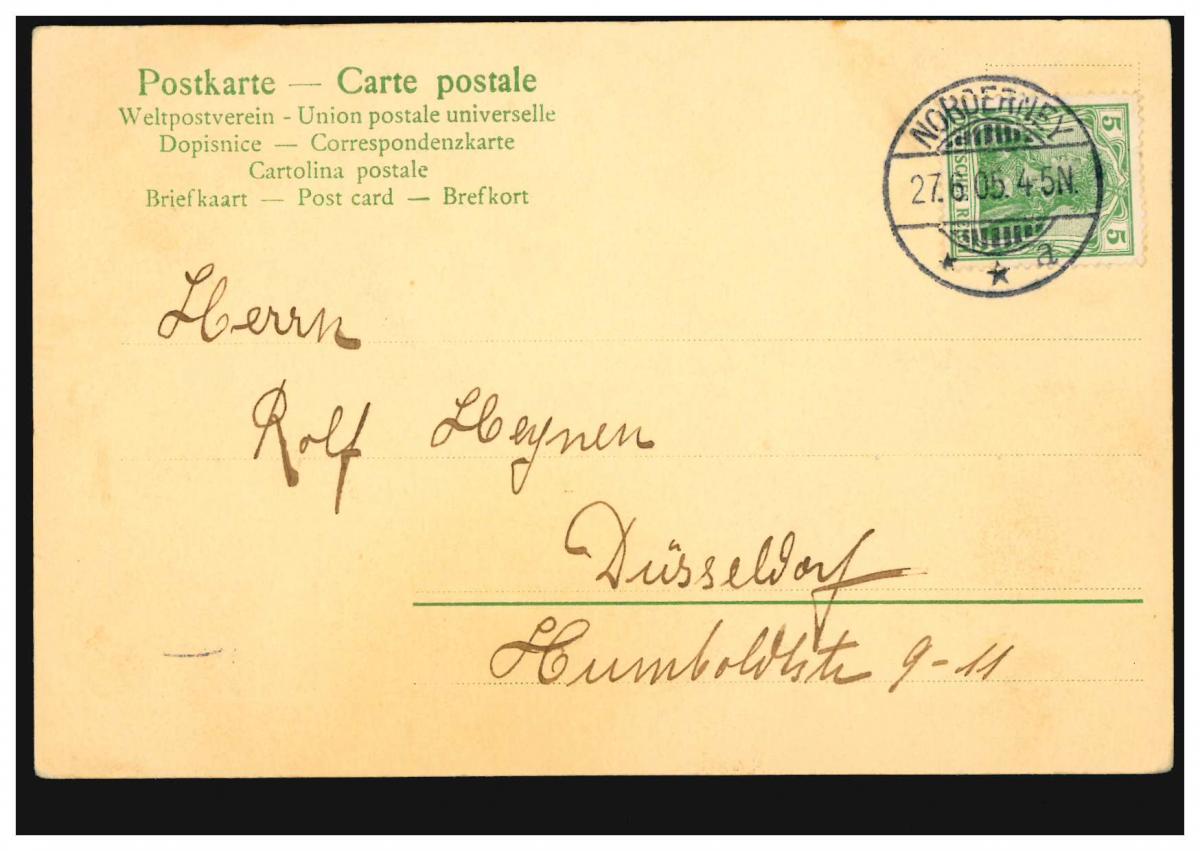 Postkarte — Carte postale
Weltpostverein - Union postale universelle
Dopisnice — Correspondenzkarte
Cartolina postale
Briefkaart — Post card — Brefkort
NORDERNEY
27.6.05. 4-5N.
a
5
5
Herrn
Rolf Heynen
Düsseldorf
Humboldtste 9-11